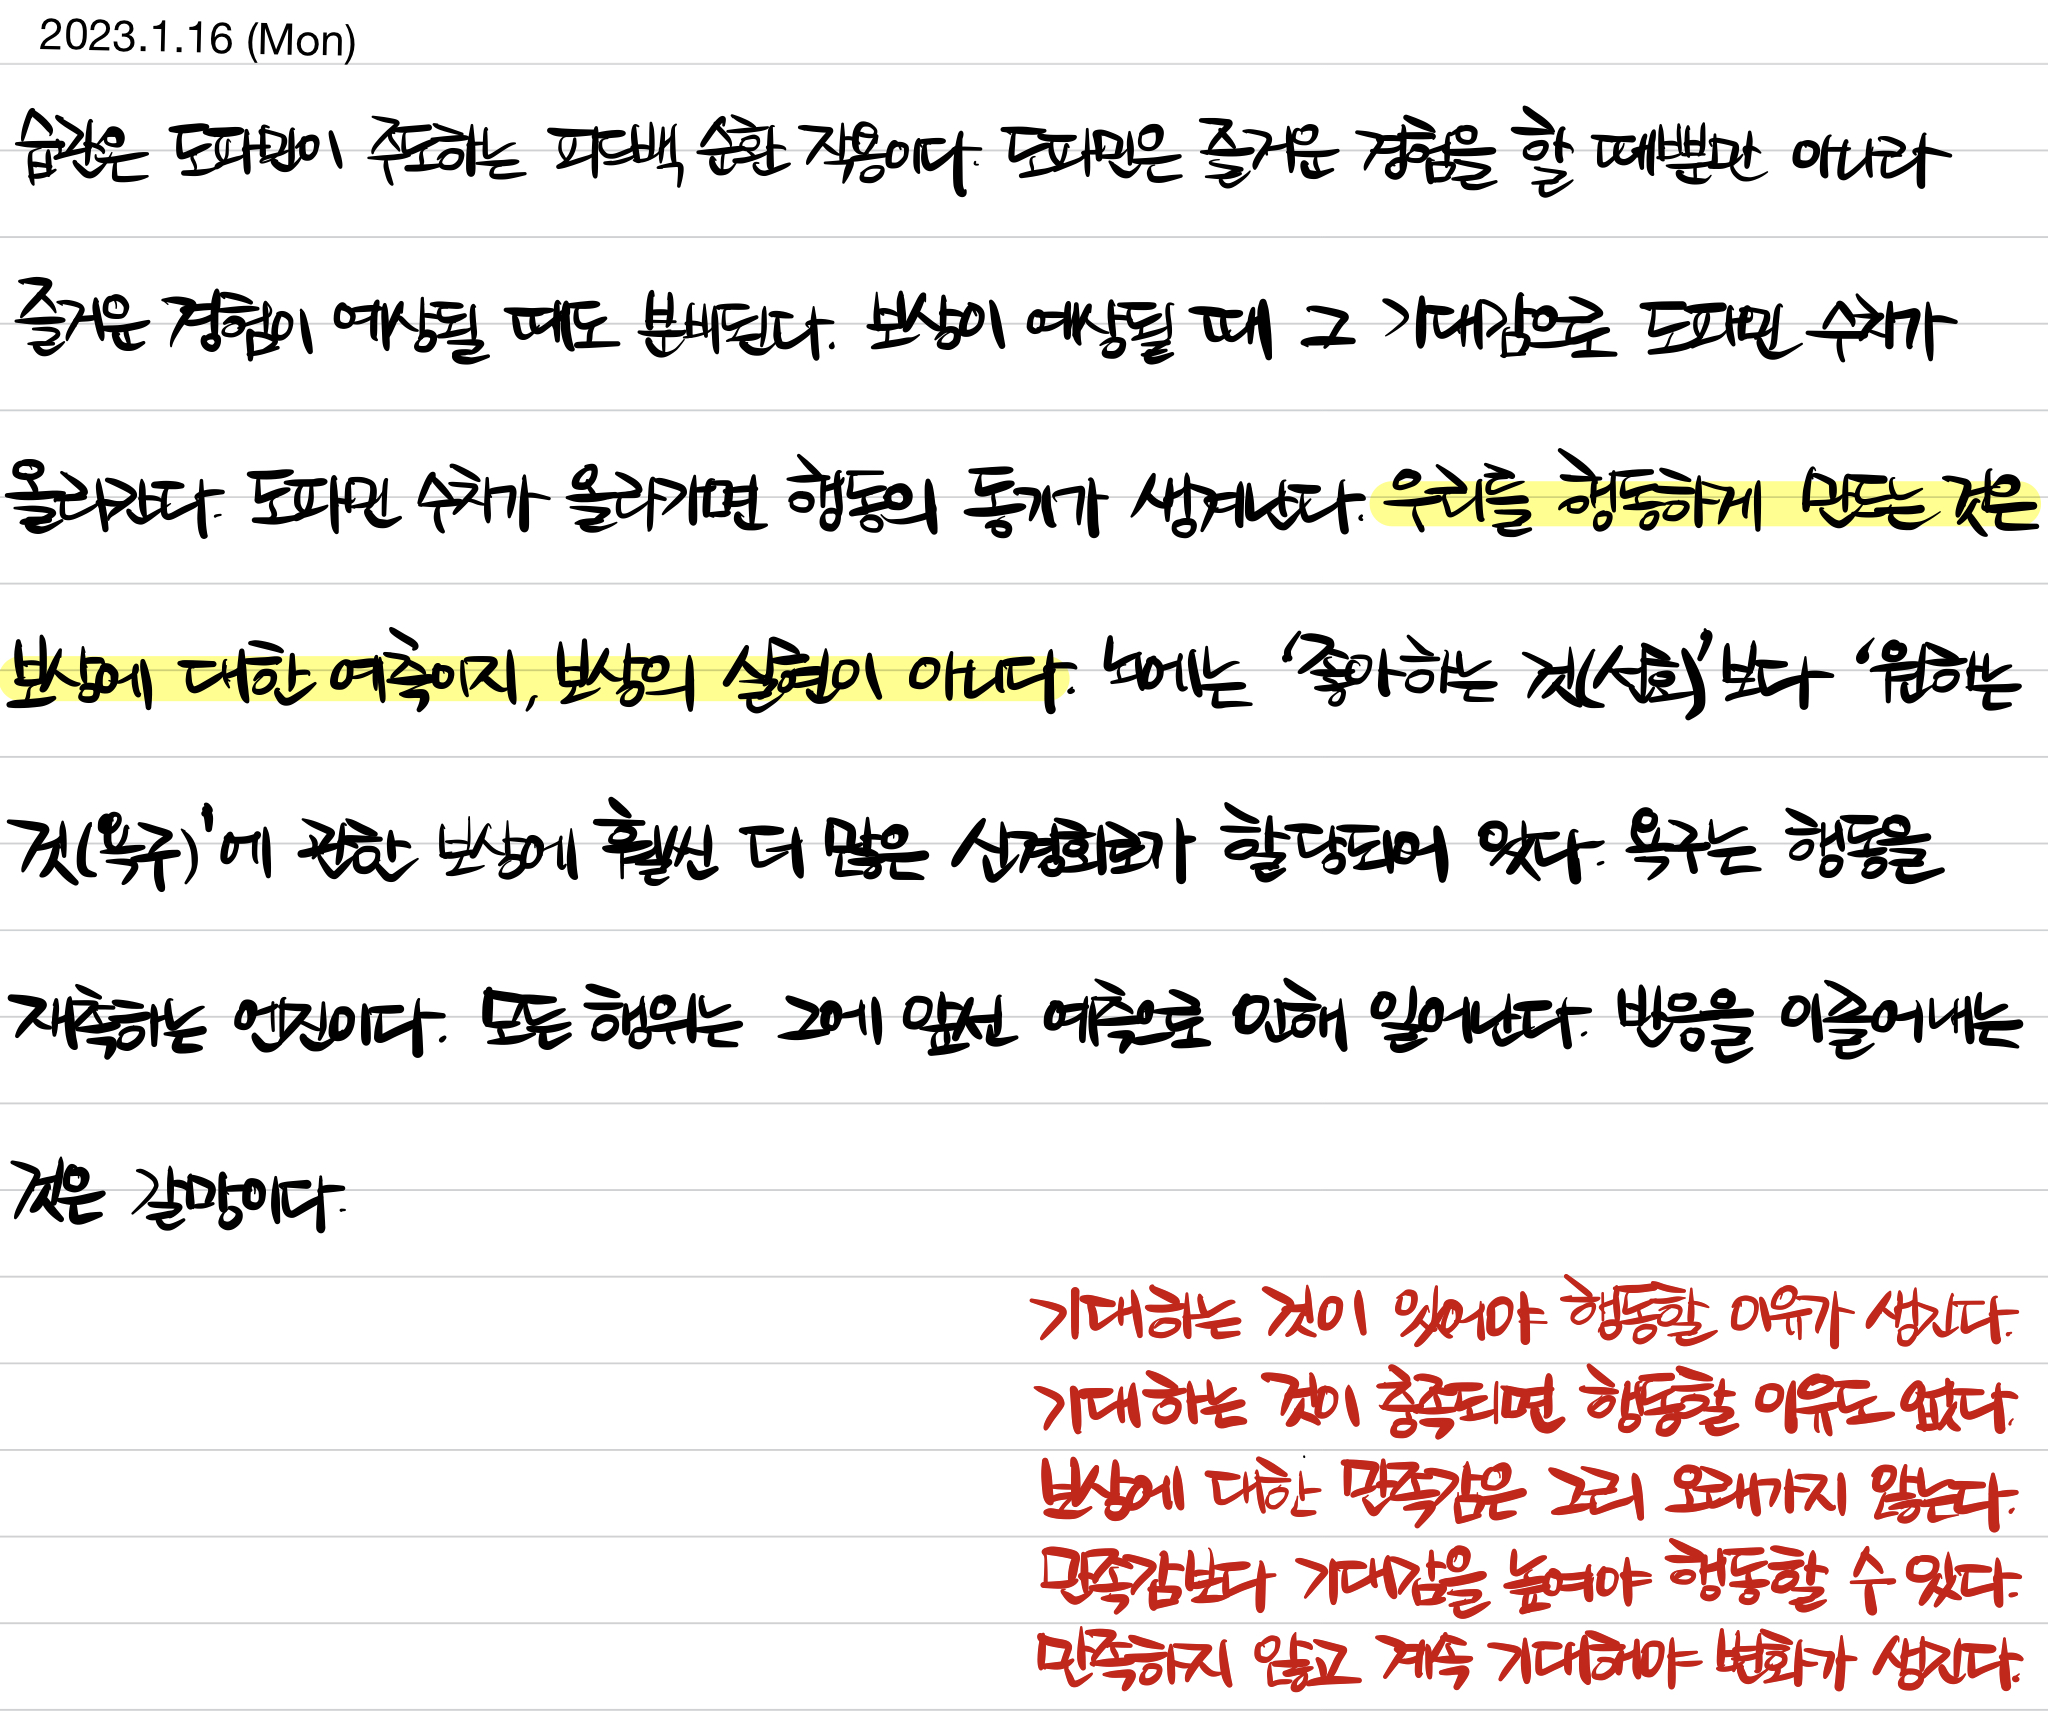 2023.1.16 (Mon)
습관은 도파민이 주도하는 피드백 순환 작용이다. 도파민은 즐거운 경험을 할 때뿐만 아니라
즐거운 경험이 예상될 때도 분비된다. 보상이 예상될 때 그 기대감으로 도파민 수치가
올라간다. 도파민 수치가 올라가면 행동의 동기가 생겨난다. 우리를 행동하게 만드는 것은
보상에 대한 예측이지, 보상의 실현이 아니다. 뇌에는 '좋아하는 것(선호)'보다 '원하는
것(욕구)'에 관한 보상에 훨씬 더 많은 신경회로가 할당되어 있다. 욕구는 행동을
재촉하는 엔진이다. 모든 행위는 그에 앞선 예측으로 인해 일어난다. 반응을 이끌어내는
것은 갈망이다.
기대하는 것이 있어야 행동할 이유가 생긴다.
기대하는 것이 충족되면 행동할 이유도 없다.
보상에 대한 만족감은 그리 오래가지 않는다.
만족감보다 기대감을 높여야 행동할 수 있다.
만족하지 않고 계속 기대해야 변화가 생긴다.